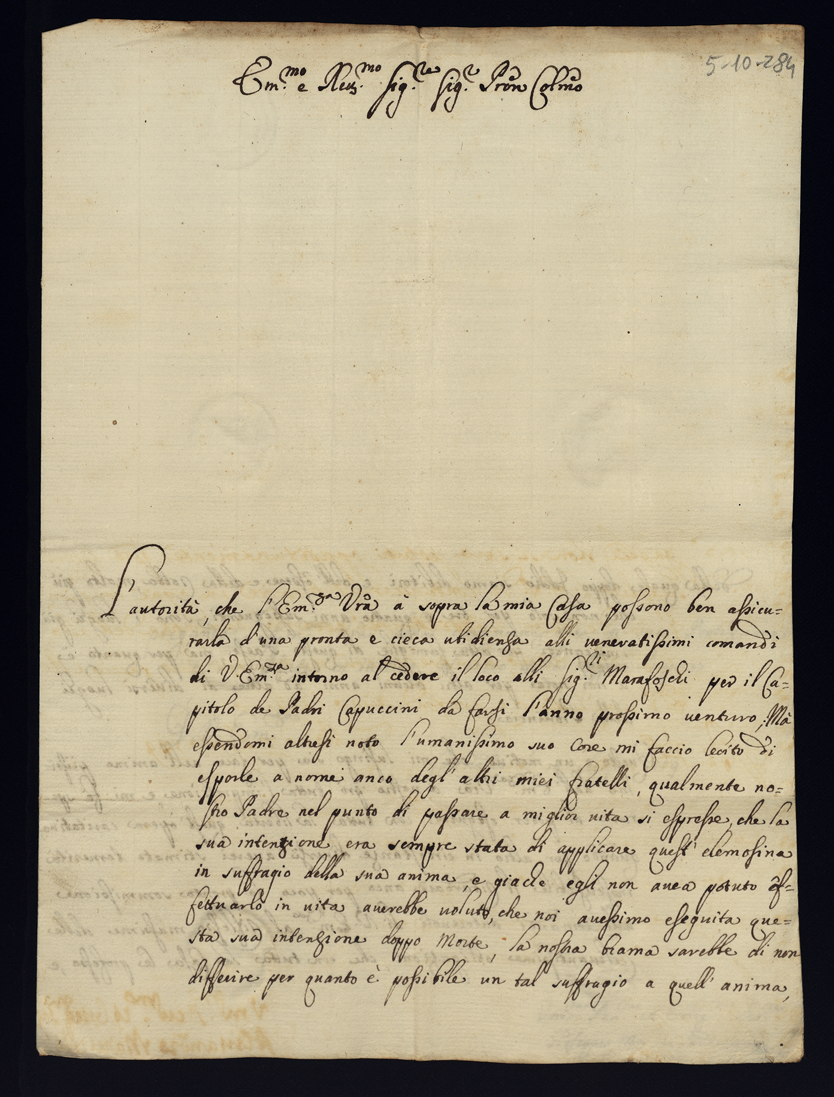 5-10-284
Em.mo e Reu.mo Sig.re Sig.r Pròn Colmo
L'autorità, che l'Em.za Vrà à sopra la mia Casa possono ben assicu=
rarla d'una pronta e cieca ubidienza alli veneratissimi comandi
di V Em.za intorno al cedere il loco alli Sig.ri Marafoschi per il Ca=
pitolo de Padri Capuccini da farsi l'anno prossimo venturo, Mà
essendomi altresi noto l'umanissimo suo Core mi faccio lecito di
esporle a nome anco degl'altri miei fratelli, qualmente no=
stro Padre nel punto di passare a miglior vita si espresse, che la
sua intenzione era sempre stata di applicare quest'elemosina
in suffragio della sua anima, e giache egli non auea potuto ef=
fettuarlo in uita auerebbe uoluto, che noi auessimo eseguita que=
sta sua intenzione doppo Morte, la nostra brama sarebbe di non
differire per quanto è possibile un tal suffragio a quell'anima,